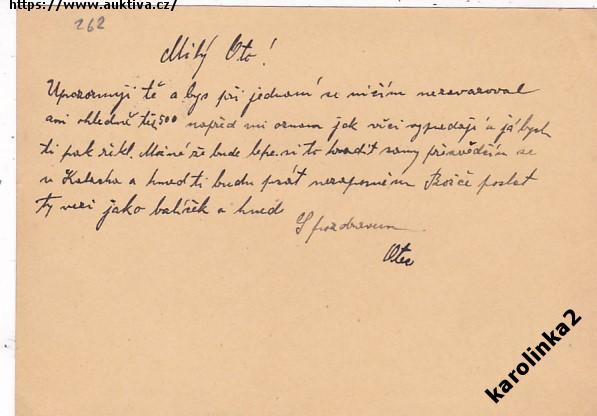 https://www.auktiva.cz/
262
Milý Oto!
Upozorňuji tě a bys při jednání se ničím nezavazoval
ani ohledně 500 napřed mi oznam jak věci vypadají a já bych
ti pak řekl. Možné že bude lepe si to samy přesvědčím se
u a hned ti budu psát Poslat
Ty věci jako balíček a hned
S pozdravem
Otec
karolinka2